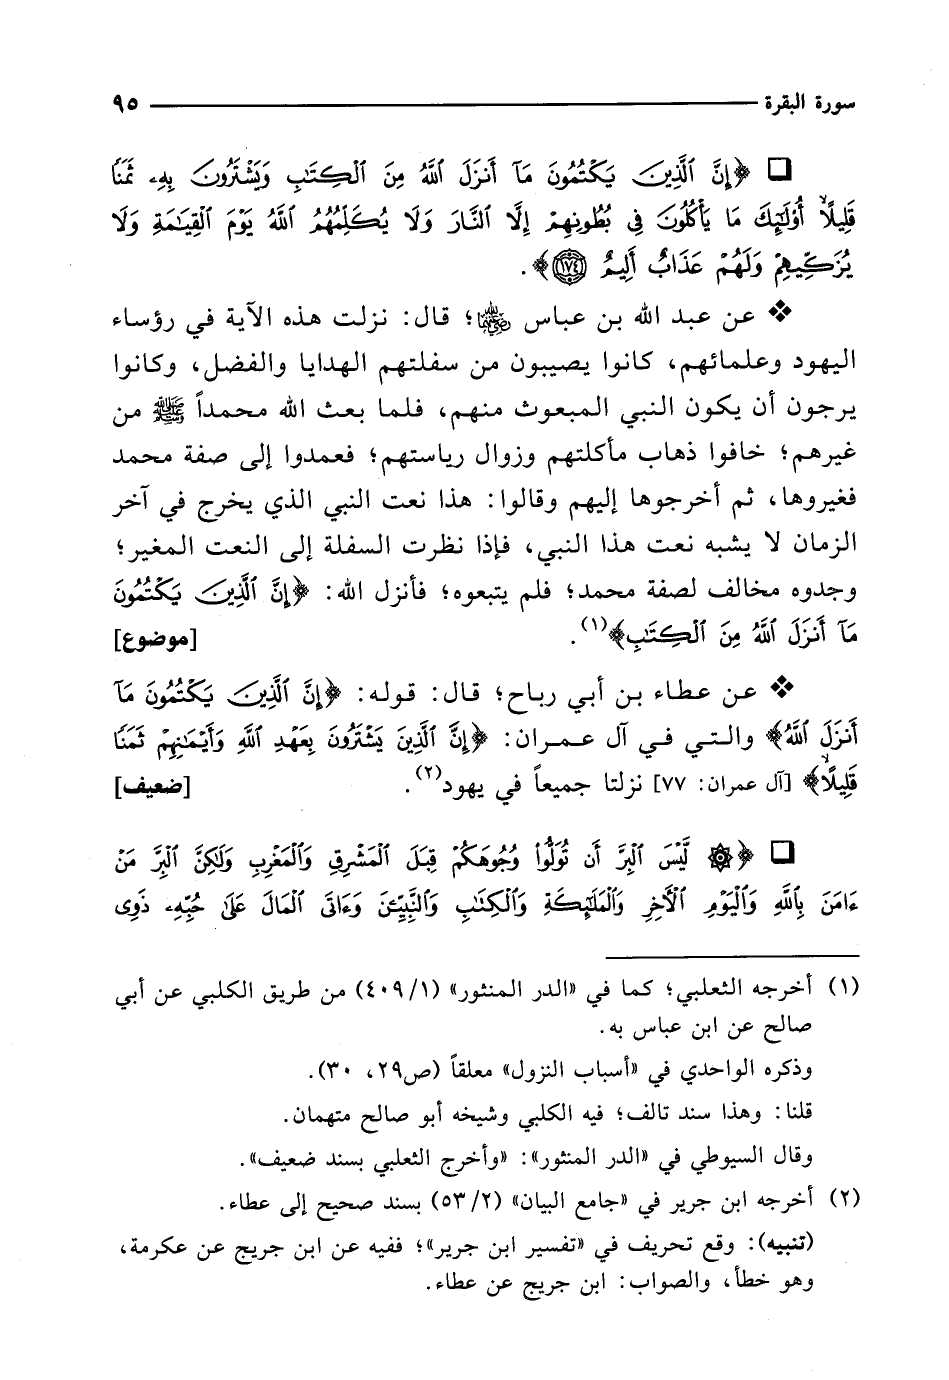 سورة البقرة ٩٥
❑ ﴿إِنَّ ٱلَّذِينَ يَكْتُمُونَ مَآ أَنزَلَ ٱللَّهُ مِنَ ٱلْكِتَٰبِ وَيَشْتَرُونَ بِهِۦ ثَمَنًا
قَلِيلًا ۙ أُو۟لَٰٓئِكَ مَا يَأْكُلُونَ فِى بُطُونِهِمْ إِلَّا ٱلنَّارَ وَلَا يُكَلِّمُهُمُ ٱللَّهُ يَوْمَ ٱلْقِيَٰمَةِ وَلَا
يُزَكِّيهِمْ وَلَهُمْ عَذَابٌ أَلِيمٌ ١٧٤﴾.
❖ عن عبد الله بن عباس رضي الله عنهما؛ قال: نزلت هذه الآية في رؤساء
اليهود وعلمائهم، كانوا يصيبون من سفلتهم الهدايا والفضل، وكانوا
يرجون أن يكون النبي المبعوث منهم، فلما بعث الله محمداً ﷺ من
غيرهم؛ خافوا ذهاب مأكلتهم وزوال رياستهم؛ فعمدوا إلى صفة محمد
فغيروها، ثم أخرجوها إليهم وقالوا: هذا نعت النبي الذي يخرج في آخر
الزمان لا يشبه نعت هذا النبي، فإذا نظرت السفلة إلى النعت المغير؛
وجدوه مخالف لصفة محمد؛ فلم يتبعوه؛ فأنزل الله: ﴿إِنَّ ٱلَّذِينَ يَكْتُمُونَ
مَآ أَنزَلَ ٱللَّهُ مِنَ ٱلْكِتَٰبِ﴾(١). [موضوع]
❖ عن عطاء بن أبي رباح؛ قال: قوله: ﴿إِنَّ ٱلَّذِينَ يَكْتُمُونَ مَآ
أَنزَلَ ٱللَّهُ﴾ والتي في آل عمران: ﴿إِنَّ ٱلَّذِينَ يَشْتَرُونَ بِعَهْدِ ٱللَّهِ وَأَيْمَٰنِهِمْ ثَمَنًا
قَلِيلًا ۙ﴾ [آل عمران: ٧٧] نزلتا جميعاً في يهود(٢). [ضعيف]
❑ ﴿۞ لَّيْسَ ٱلْبِرَّ أَن تُوَلُّوا۟ وُجُوهَكُمْ قِبَلَ ٱلْمَشْرِقِ وَٱلْمَغْرِبِ وَلَٰكِنَّ ٱلْبِرَّ مَنْ
ءَامَنَ بِٱللَّهِ وَٱلْيَوْمِ ٱلْءَاخِرِ وَٱلْمَلَٰٓئِكَةِ وَٱلْكِتَٰبِ وَٱلنَّبِيِّـۧنَ وَءَاتَى ٱلْمَالَ عَلَىٰ حُبِّهِۦ ذَوِى
(١) أخرجه الثعلبي؛ كما في «الدر المنثور» (٤٠٩/١) من طريق الكلبي عن أبي
صالح عن ابن عباس به.
وذكره الواحدي في «أسباب النزول» معلقاً (ص٢٩، ٣٠).
قلنا: وهذا سند تالف؛ فيه الكلبي وشيخه أبو صالح متهمان.
وقال السيوطي في «الدر المنثور»: «وأخرج الثعلبي بسند ضعيف».
(٢) أخرجه ابن جرير في «جامع البيان» (٥٣/٢) بسند صحيح إلى عطاء.
(تنبيه): وقع تحريف في «تفسير ابن جرير»؛ ففيه عن ابن جريج عن عكرمة،
وهو خطأ، والصواب: ابن جريج عن عطاء.